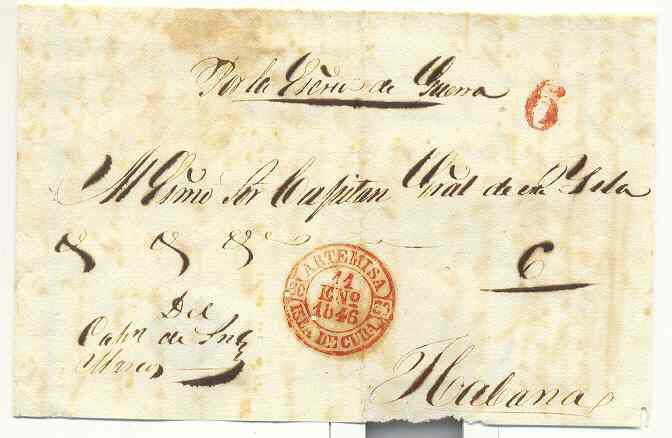 Por la Esćria de Guerra
6
Al Exmo Sor Capitan Gral de esta Ysla
6
ARTEMISA
11
ENO
1846
ISLA DE CUBA
Del
Capn de
Habana